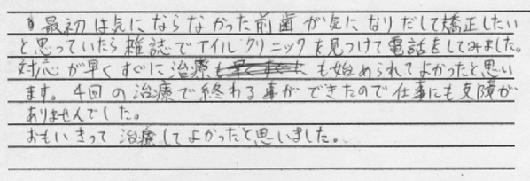 最初は気にならなかった前歯が気になりだして矯正したい
と思っていたら雑誌でエイルクリニックを見つけて電話をしてみました。
対応が早くすぐに治療も始められてよかったと思い
ます。4回の治療で終わる事ができたので仕事にも支障が
ありませんでした。
おもいきって治療してよかったと思いました。